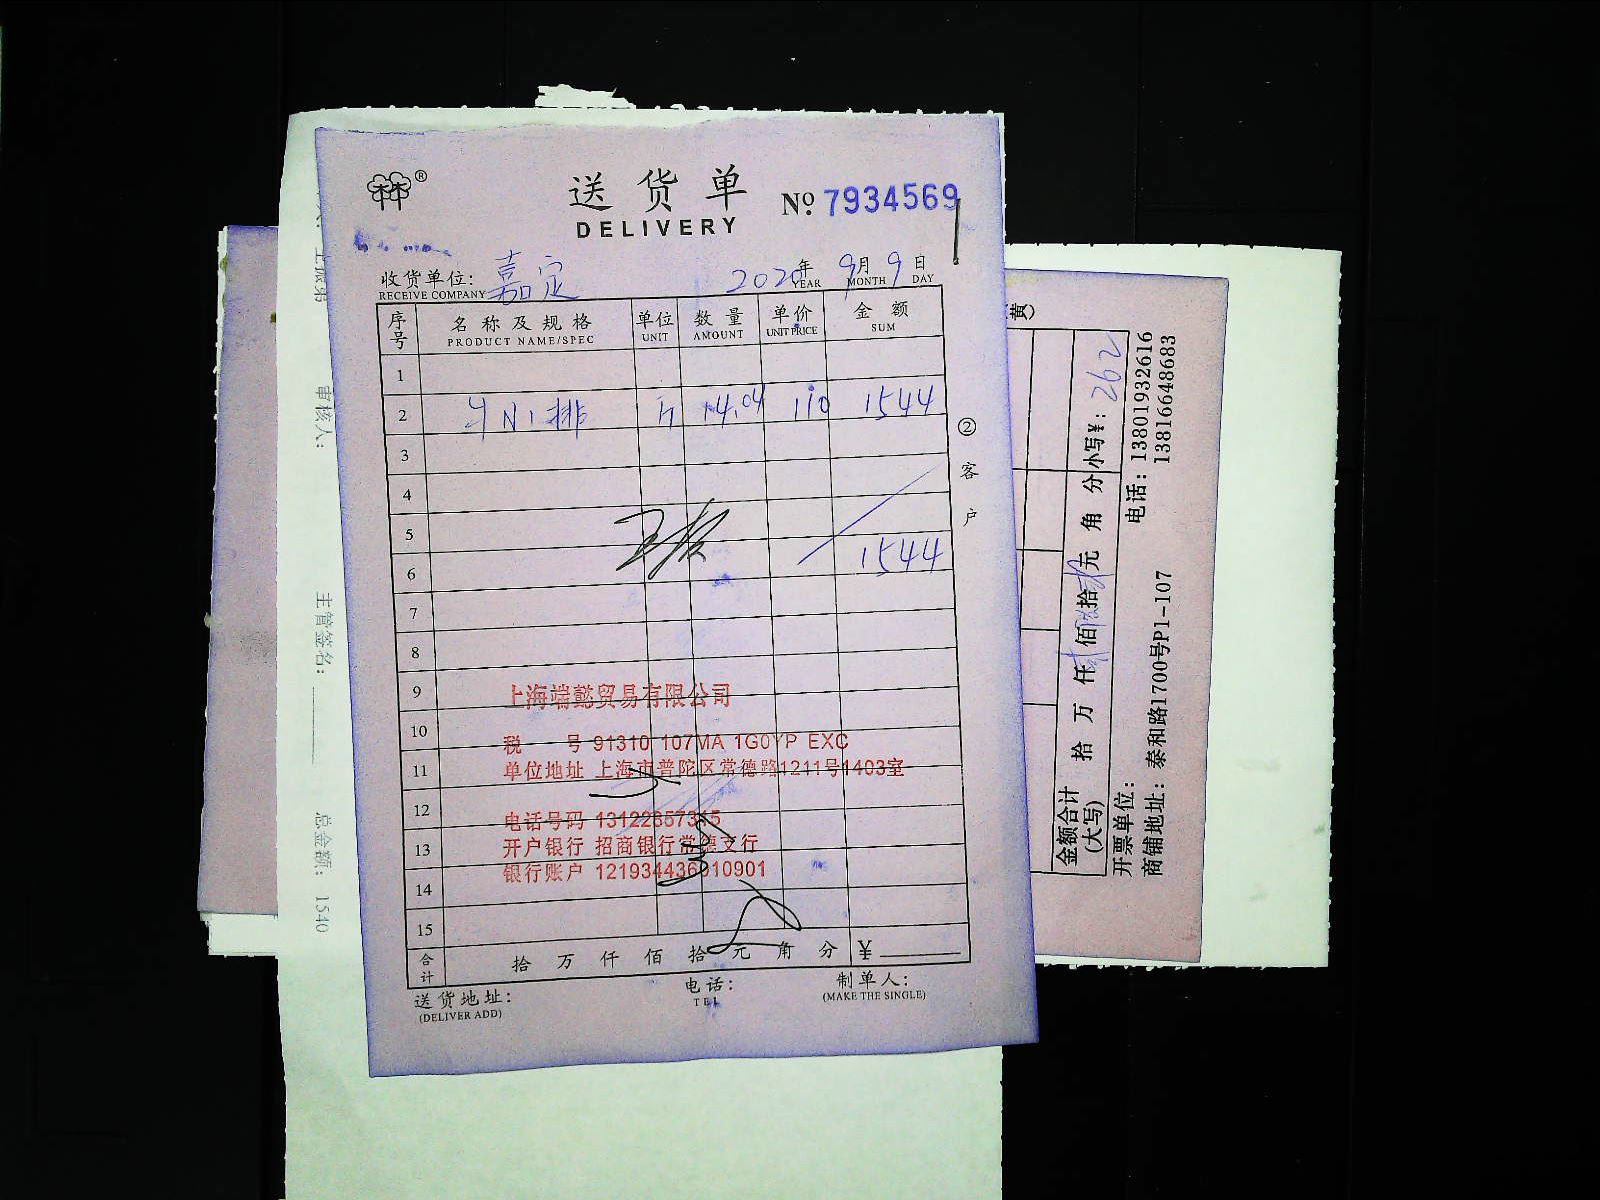 送货单
DELIVERY
№ 7934569
收货单位: 嘉定 2020年 9月 9日
RECEIVE COMPANY YEAR MONTH DAY
序号 名称及规格 单位 数量 单价 金额
PRODUCT NAME/SPEC UNIT AMOUNT UNIT PRICE SUM
1
2 牛小排 14.04 110 1544
3
4
5
6 1544
7
8
9
上海端懿贸易有限公司
10
税 号 91310 107MA 1G0YP EXC
11 单位地址 上海市普陀区常德路1211号1403室
12
电话号码 13122657315
13 开户银行 招商银行常德支行
银行账户 121934436910901
14
15
合计 拾 万 仟 佰 拾 元 角 分 ¥
送货地址: 电话: 制单人:
(DELIVER ADD) TEL (MAKE THE SINGLE)
②客户
审核人:
主管签名:
总金额: 1540
黄)
金额合计 拾 万 仟 佰 拾 元 角 分 小写¥: 262
(大写)
开票单位: 电话: 13801932616
商铺地址: 泰和路1700号P1-107 13816648683